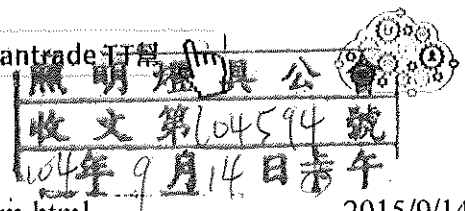 antrade TT幫
照明燈具公會
收文第104594號
104年9月14日 午
html 2015/9/14